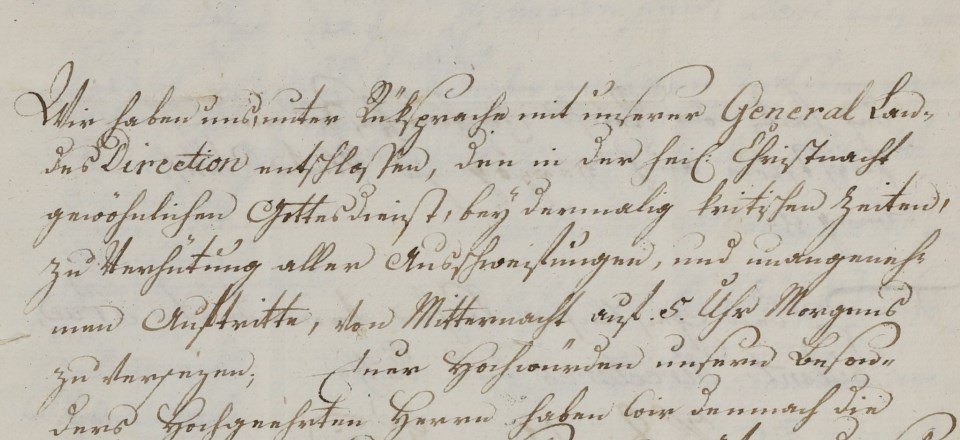 Wir haben uns, unter Rüksprache mit unserer General Lan-
des Direction entschlossen, den in der heil: Christnacht
gewöhnlichen Gottesdienst, bey dermalig kritischen Zeiten,
zu Verhütung aller Ausschweifungen, und unangeneh-
men Auftritte, von Mitternacht auf. 5. Uhr Morgens
zu versezen; Euer Hochwürden unsern beson-
ders Hochgeehrten Herrn haben wir demnach die